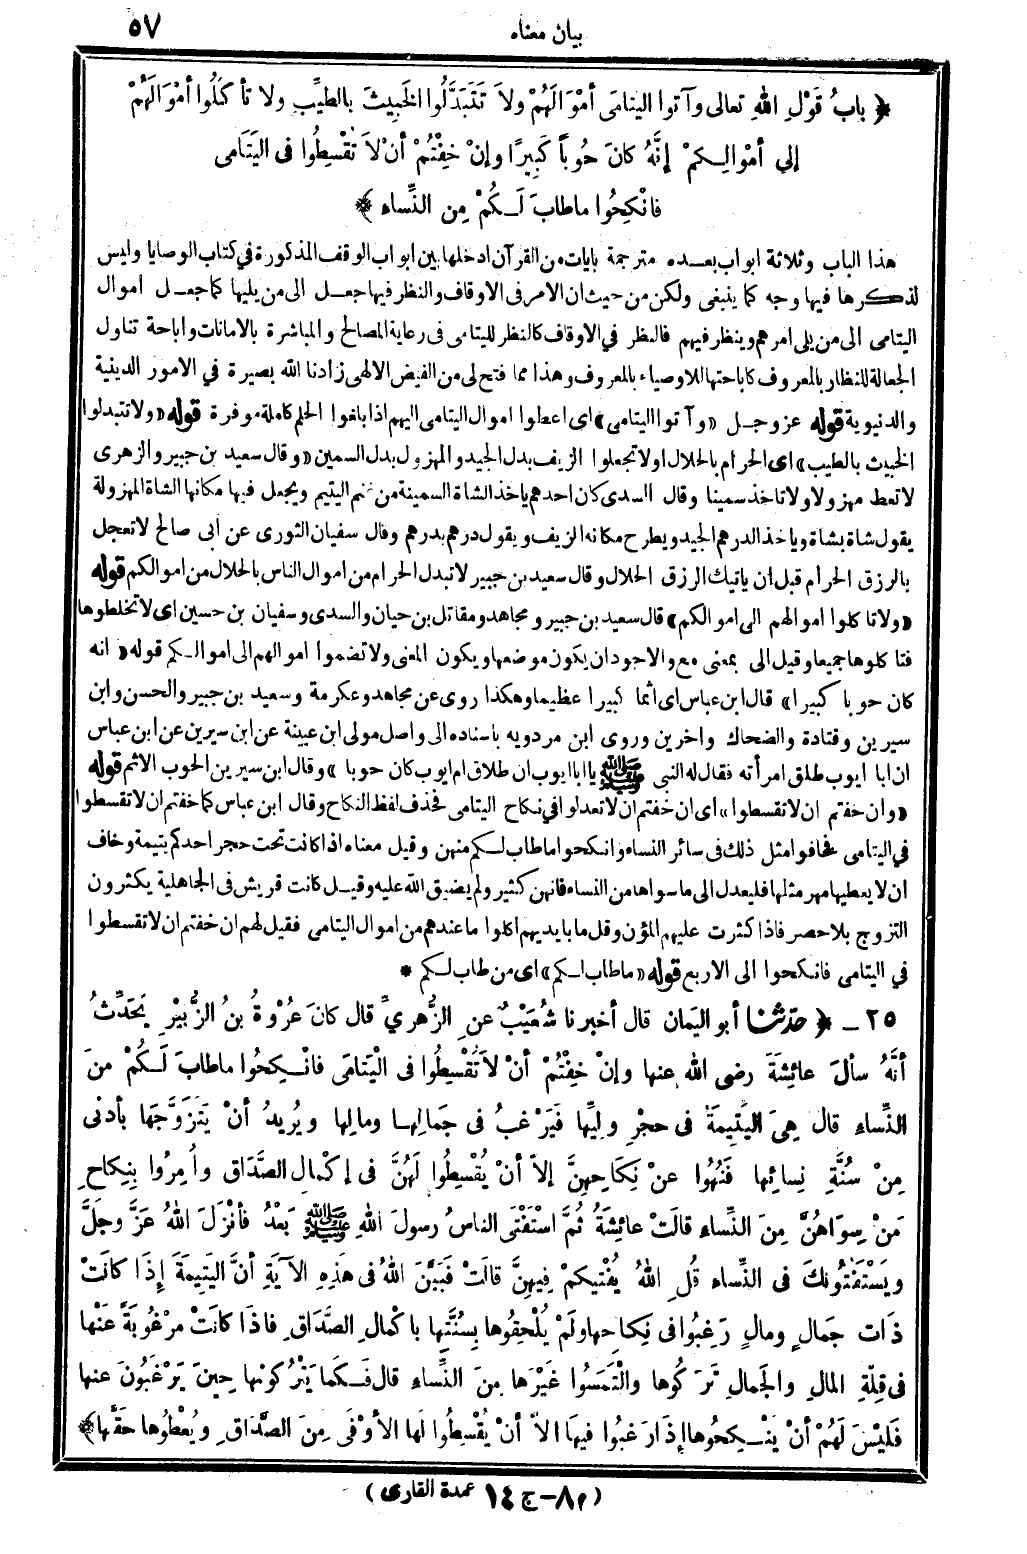 بيان معناه ٥٧
﴿ بابُ قَوْلِ اللهِ تعالى وآتوا اليتامَى أمْوَالَهُمْ ولاَ تَتَبَدَّلُوا الخَبِيثَ بالطيِّبِ ولا تأكُلُوا أمْوَالَهُمْ
إلي أمْوالِكمْ إنَّهُ كانَ حُوباً كَبِيرًا وإنْ خِفْتُمْ أنْ لاَ تُقْسِطُوا فى اليَتَامَى
فانْكِحُوا ماطابَ لَكُمْ مِن النِّساءِ ﴾
هذا الباب وثلاثة ابواب بعده مترجمة بايات من القرآن ادخلها بين ابواب الوقف المذكورة في كتاب الوصايا وليس
لذكرها فيها وجه كما ينبغى ولكن من حيث ان الامر فى الاوقاف والنظر فيها جعل الى من يليها كما جعل اموال
اليتامى الى من يلى امرهم وينظر فيهم فالنظر في الاوقاف كالنظر لليتامى فى رعاية المصالح والمباشرة بالامانات واباحة تناول
الجعالة للنظار بالمعروف كاباحتها للاوصياء بالمعروف وهذا مما فتح لى من الفيض الالهى زادنا الله بصيرة في الامور الدينية
والدنيوية قوله عز وجل «وآتوا اليتامى» اى اعطوا اموال اليتامى اليهم اذا بلغوا الحلم كاملة موفرة قوله «ولا تتبدلوا
الخبيث بالطيب» اى الحرام بالحلال اولا تجعلوا الزيف بدل الجيد والمهزول بدل السمين «وقال سعيد بن جبير والزهرى
لا تعط مهزولا ولا تاخذ سمينا وقال السدى كان احدهم ياخذ الشاة السمينة من غنم اليتيم ويجعل فيها مكانها الشاة المهزولة
يقول شاة بشاة وياخذ الدرهم الجيد ويطرح مكانه الزيف ويقول درهم بدرهم وقال سفيان الثورى عن أبى صالح لا تعجل
بالرزق الحرام قبل ان ياتيك الرزق الحلال وقال سعيد بن جبير لا تبدل الحرام من اموال الناس بالحلال من اموالكم قوله
«ولا تاكلوا اموالهم الى اموالكم» قال سعيد بن جبير ومجاهد ومقاتل بن حيان والسدى وسفيان بن حسين اى لا تخلطوها
فتاكلوها جميعا وقيل الى بمعنى مع والاجود ان يكون موضعها ويكون المعنى ولا تضموا اموالهم الى اموالكم قوله « انه
كان حوبا كبيرا» قال ابن عباس اى اثما كبيرا عظيما وهكذا روى عن مجاهد وعكرمة وسعيد بن جبير والحسن وابن
سيرين وقتادة والضحاك واخرين وروى ابن مردويه باسناده الى واصل مولى ابن عيينة عن ابن سيرين عن ابن عباس
ان ابا ايوب طلق امرأته فقال له النبى ﷺ يا ابا ايوب ان طلاق ام ايوب كان حوبا » وقال ابن سيرين الحوب الاثم قوله
«وان خفتم ان لا تقسطوا» اى ان خفتم ان لا تعدلوا في نكاح اليتامى فحذف لفظ النكاح وقال ابن عباس كما خفتم ان لا تقسطوا
في اليتامى فخافوا مثل ذلك فى سائر النساء وانكحوا ما طاب لكم منهن وقيل معناه اذا كانت تحت حجر احدكم يتيمة وخاف
ان لا يعطيها مهر مثلها فليعدل الى ما سواها من النساء فانهن كثير ولم يضيق الله عليه وقيل كانت قريش فى الجاهلية يكثرون
التزوج بلا حصر فاذا كثرت عليهم المؤن وقل ما بايديهم اكلوا ما عندهم من اموال اليتامى فقيل لهم ان خفتم ان لا تقسطوا
في اليتامى فانكحوا الى الاربع قوله «ما طاب لكم» اى من طاب لكم *
٢٥ ــ ﴿ حدثنا أبو اليَمانِ قال أخبرنا شُعَيْبٌ عنِ الزُّهْرِيِّ قال كانَ عُرْوةُ بنُ الزُّبَيْرِ يُحَدِّثُ
أنَّهُ سألَ عائِشةَ رضى الله عنها وإنْ خِفْتُمْ أنْ لاَ تُقْسِطُوا فى اليَتَامَى فانْكِحُوا ماطابَ لَكُمْ مِنَ
النِّساءِ قال هِىَ اليَتِيمَةُ فى حجْرِ ولِيِّها فَيَرْغبُ فى جَمالِها ومالِها ويُريدُ أنْ يَتَزَوَّجَها بأدنى
مِنْ سُنَّةِ نِسائِها فَنُهُوا عنْ نِكاحِهِنَّ إلاّ أنْ يُقْسِطُوا لَهُنَّ فى إكْمالِ الصَّدَاقِ وأُمِرُوا بِنِكاحِ
مَنْ سِوَاهُنَّ مِنَ النِّساءِ قالَتْ عائِشَةُ ثُمَّ اسْتَفْتَى الناسُ رسولَ اللهِ ﷺ بَعْدُ فأنْزَلَ اللهُ عَزَّ وجلَّ
ويَسْتَفْتُونَكَ فى النِّساءِ قُلِ اللهُ يُفْتِيكمْ فِيهِنَّ قالَتْ فَبَيَّنَ اللهُ فى هَذِهِ الآيَةِ أنَّ اليَتِيمَةَ إذَا كانَتْ
ذَاتَ جَمالٍ ومالٍ رَغِبُوا فى نِكاحِها ولَمْ يُلْحِقُوها بِسُنَّتِها باكْمالِ الصَّدَاقِ فاذَا كانَتْ مرْغُوبَةً عَنْها
فى قِلّةِ المالِ والجَمالِ تَرَكُوها والْتَمَسُوا غَيْرَها مِنَ النِّساءِ قال فَكَما يَتْرُكونَها حِينَ يَرْغَبُونَ عنها
فَلَيْسَ لَهُمْ أنْ يَنْكِحُوها إذَا رَغِبُوا فيها إلاّ أنْ يُقْسِطُوا لَها الأوْفَى مِنَ الصَّدَاقِ ويُعْطُوها حَقَّها ﴾
( م ٨ - ج ١٤ عمدة القارى )